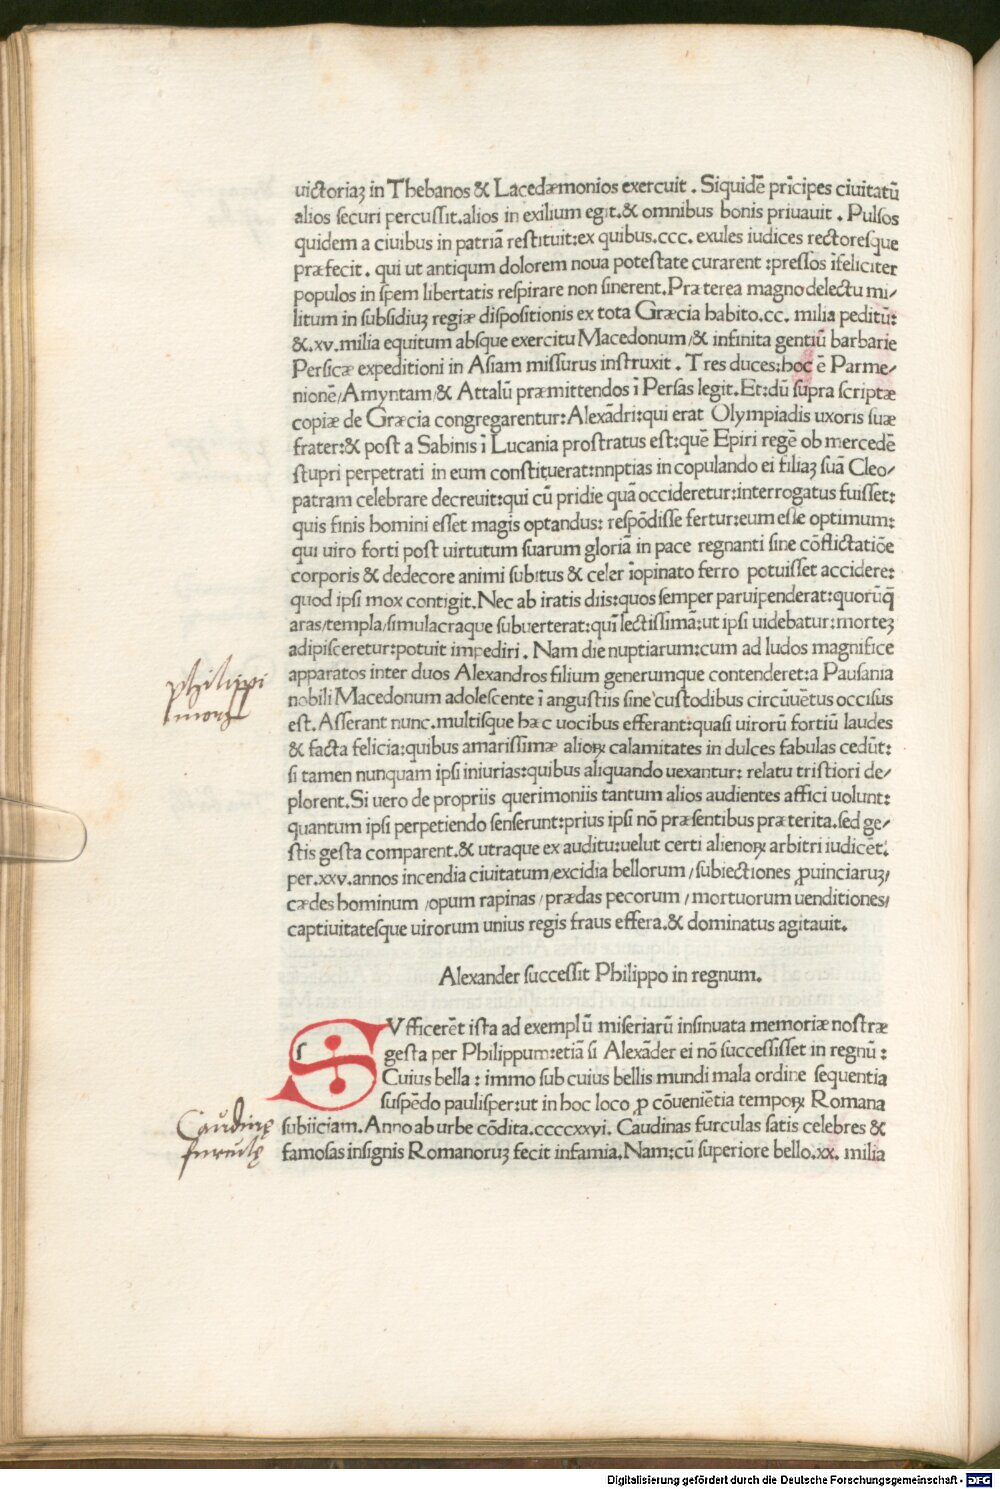 uictoriaꝫ in Thebanos & Lacedæmonios exercuit . Siquidē prīcipes ciuitatū
alios securi percussit.alios in exilium egit.& omnibus bonis priuauit . Pulsos
quidem a ciuibus in patriā restituit:ex quibus.ccc. exules iudices rectoresque
præfecit . qui ut antiqum dolorem noua potestate curarent :pressos īfeliciter
populos in spem libertatis respirare non sinerent.Præterea magno delectu mi/
litum in subsidiuꝫ regiæ dispositionis ex tota Græcia habito.cc. milia peditū:
&.xv.milia equitum absque exercitu Macedonum/& infinita gentiū barbarie
Persicæ expeditioni in Asiam missurus instruxit . Tres duces:hoc ē Parme/
nionē/Amyntam/& Attalū præmittendos ī Persas legit.Et:dū supra scriptæ
copiæ de Græcia congregarentur:Alexādri:qui erat Olympiadis uxoris suæ
frater:& post a Sabinis ī Lucania prostratus est:quē Epiri regē ob mercedē
stupri perpetrati in eum constituerat:nnptias in copulando ei filiaꝫ suā Cleo/
patram celebrare decreuit:qui cū pridie quā occideretur:interrogatus fuisset:
quis finis homini esset magis optandus: respōdisse fertur:eum esse optimum:
qui uiro forti post uirtutum suarum gloriā in pace regnanti sine cōflictatiōe
corporis & dedecore animi subitus & celer īopinato ferro potuisset accidere:
quod ipsi mox contigit.Nec ab iratis diis:quos semper paruipenderat:quorūq̄
aras/templa/simulacraque subuerterat:quī lectissimā:ut ipsi uidebatur:morteꝫ
adipisceretur:potuit impediri . Nam die nuptiarum:cum ad ludos magnifice
apparatos inter duos Alexandros filium generumque contenderet:a Pausania
nobili Macedonum adolescente ī angustiis sine custodibus circūuētus occisus
est.Asserant nunc.multisque hæc uocibus efferant:quasi uirorū fortiū laudes
& facta felicia:quibus amarissimæ alioꝝ calamitates in dulces fabulas cedūt:
si tamen nunquam ipsi iniurias:quibus aliquando uexantur: relatu tristiori de/
plorent.Si uero de propriis querimoniis tantum alios audientes affici uolunt:
quantum ipsi perpetiendo senserunt:prius ipsi nō præsentibus præterita.sed ge/
stis gesta comparent.& utraque ex auditu:uelut certi alienoꝝ arbitri iudicēt:
per.xxv.annos incendia ciuitatum/excidia bellorum /subiectiones ꝓuinciaruꝫ/
cædes hominum /opum rapinas /prædas pecorum /mortuorum uenditiones/
captiuitatesque uirorum unius regis fraus effera.& dominatus agitauit.
philippi
mors
Alexander successit Philippo in regnum.
SVfficerēt ista ad exemplū miseriarū insinuata memoriæ nostræ
gesta per Philippum:etiā si Alexāder ei nō successisset in regnū :
Cuius bella : immo sub cuius bellis mundi mala ordine sequentia
suspēdo paulisper:ut in hoc loco ꝓ cōueniētia tempoꝝ Romana
subiiciam.Anno ab urbe cōdita.ccccxxvi. Caudinas furculas satis celebres &
famosas insignis Romanoruꝫ fecit infamia.Nam:cū superiore bello.xx. milia
Caudinę
furculę
Digitalisierung gefördert durch die Deutsche Forschungsgemeinschaft - DFG